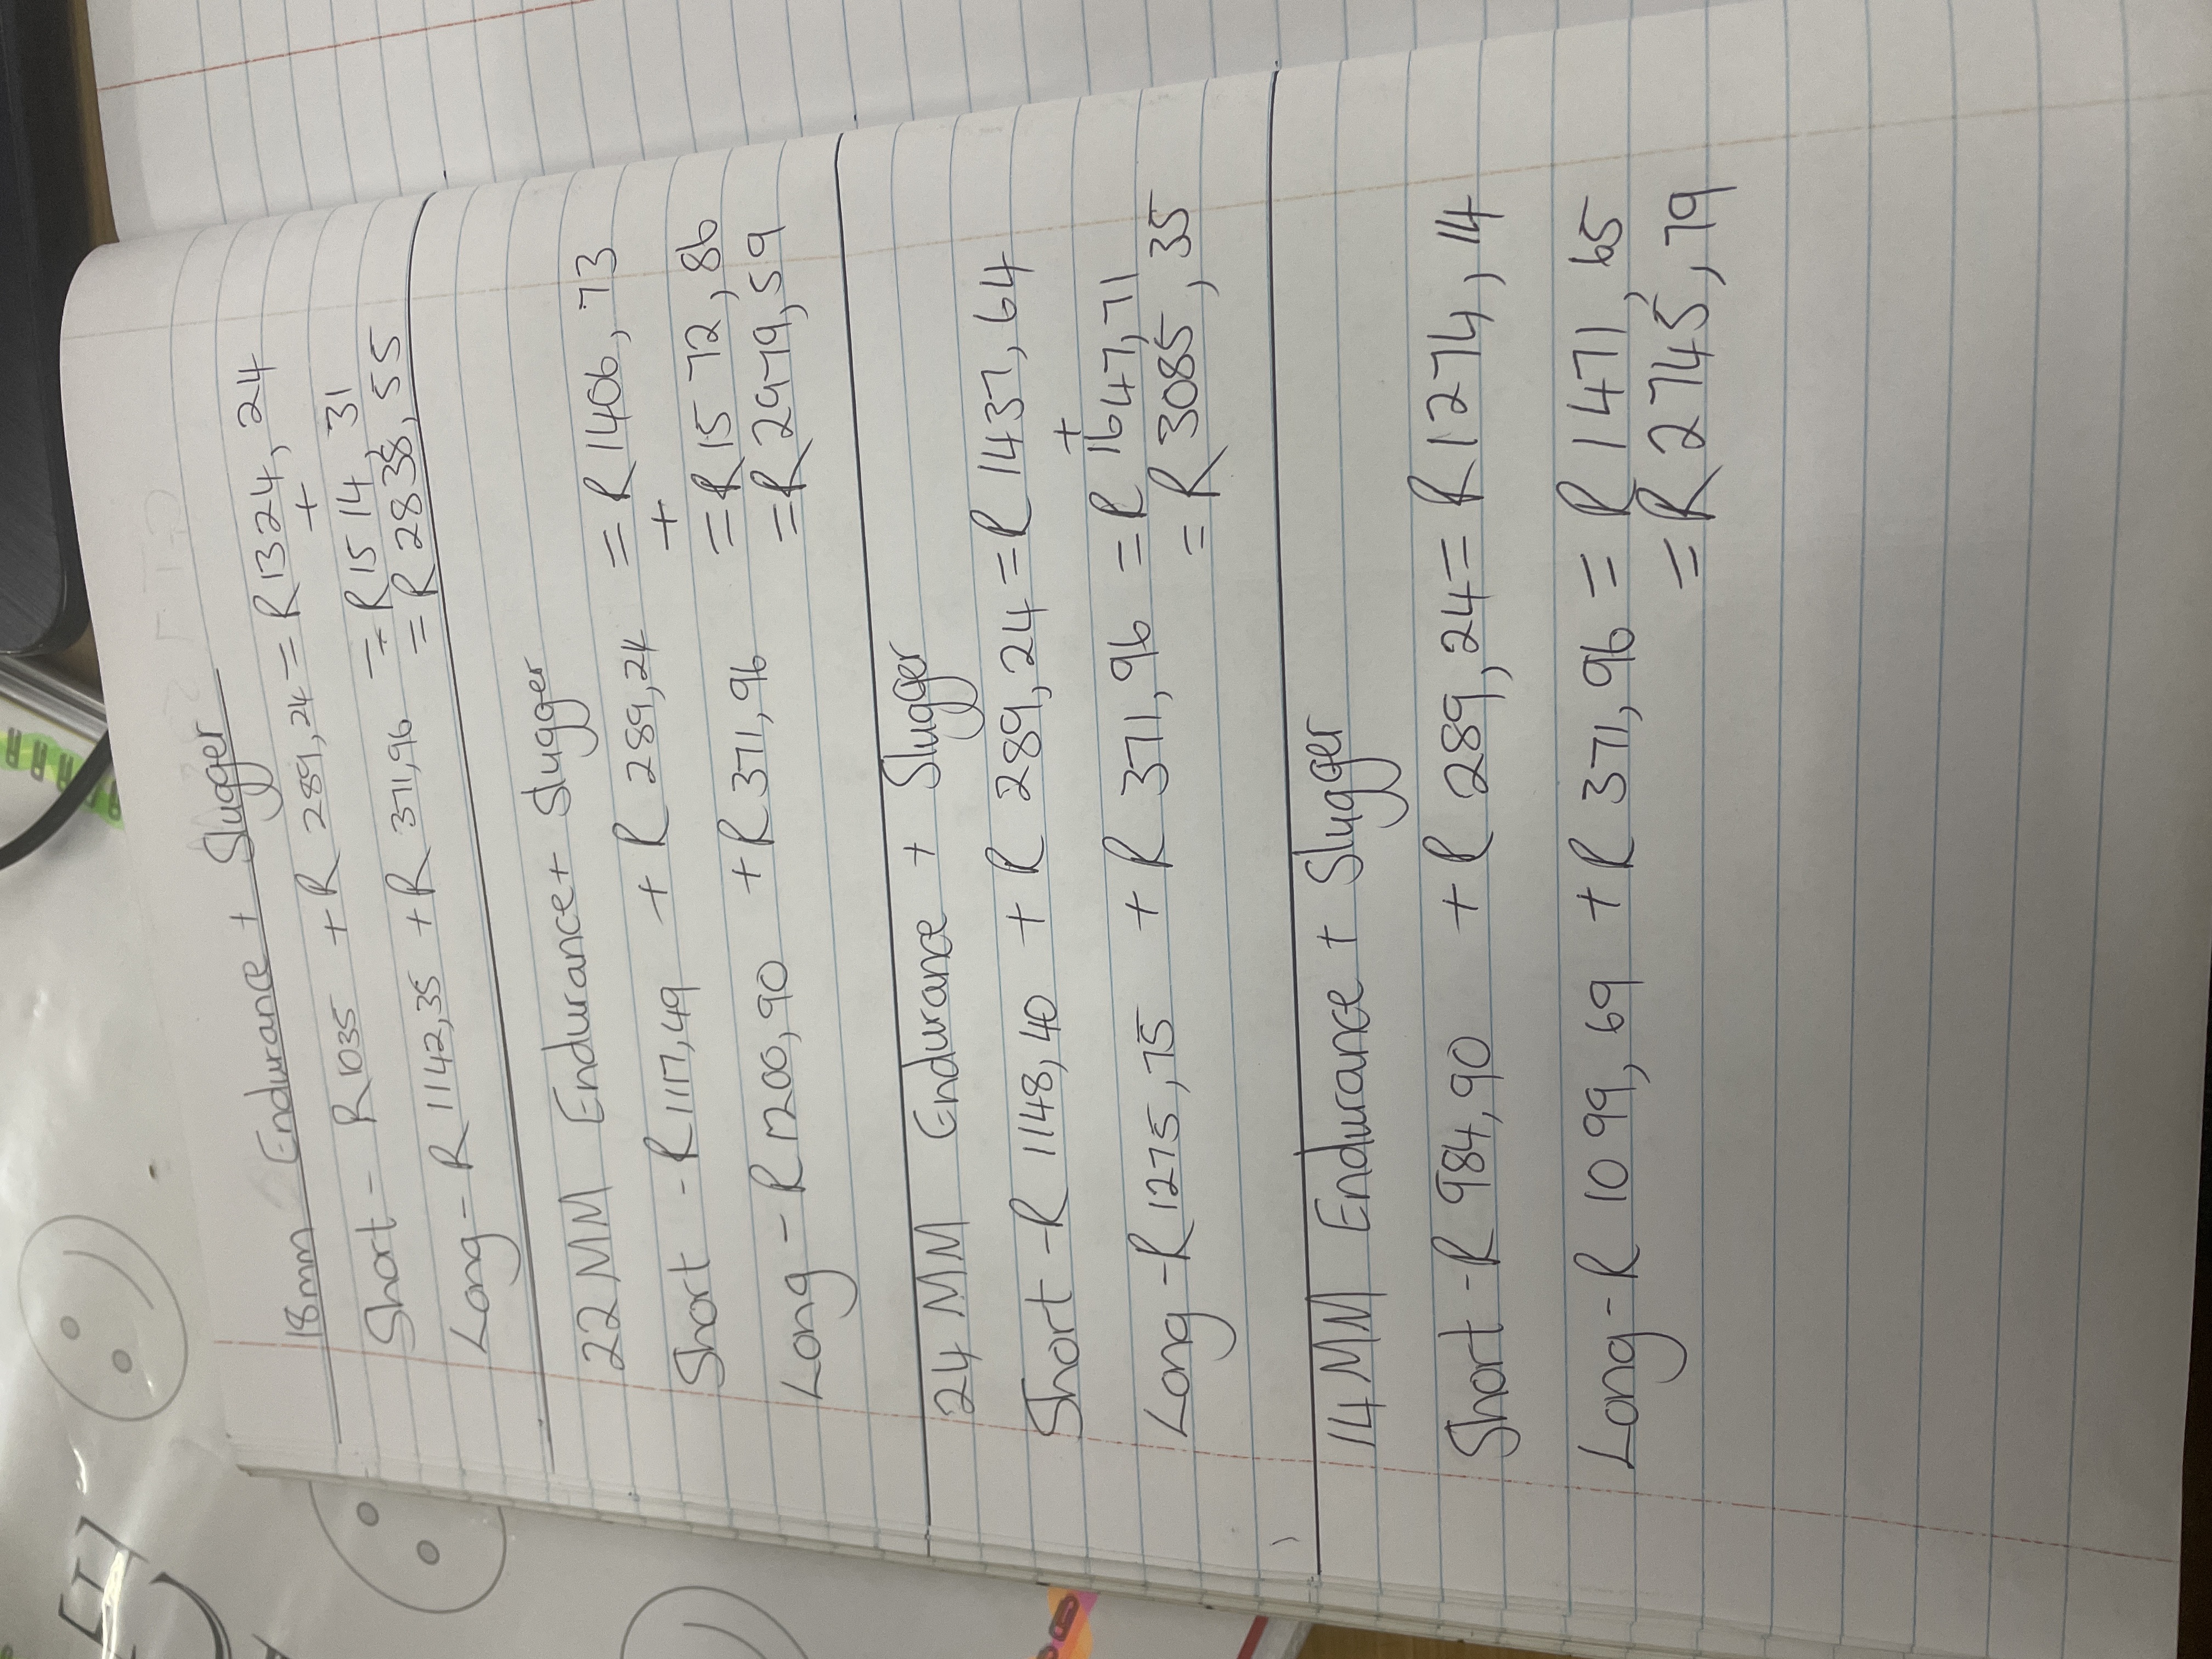 18mm Endurance + Slugger
Short - R1035 + R 289,24 = R1324,24
+
Long - R1142,35 + R 371,96 = R1514,31
= R2838,55
22MM Endurance + Slugger
Short - R1117,49 + R 289,24 = R1406,73
+
Long - R1200,90 + R371,96 = R1572,86
= R2979,59
24 MM Endurance + Slugger
Short - R 1148,40 + R 289,24 = R 1437,64
+
Long - R1275,75 + R 371,96 = R 1647,71
= R 3085,35
14MM Endurance + Slugger
Short - R 984,90 + R 289,24 = R1274,14
Long - R 1099,69 + R 371,96 = R 1471,65
= R2745,79
CH